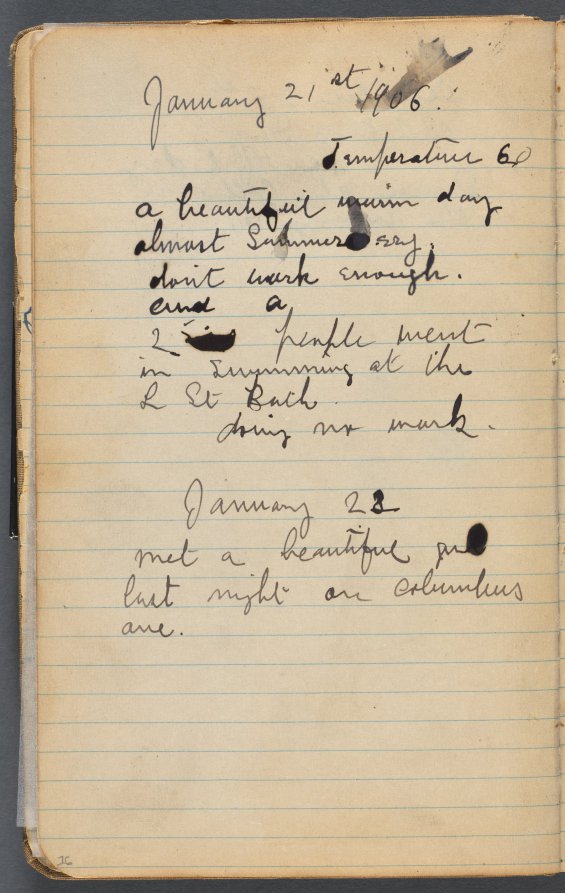 January 21st 1906.
Temperature 60
a beautiful warm day
almost Summer
don't work enough.
and a
2 people went
in swimming at the
L St Bath.
doing no work.
January 23
met a beautiful
last night on columbus
ave.
76